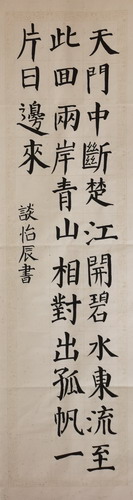 天門中斷楚江開碧水東流至
此回兩岸青山相對出孤帆一
片日邊來
談怡辰書